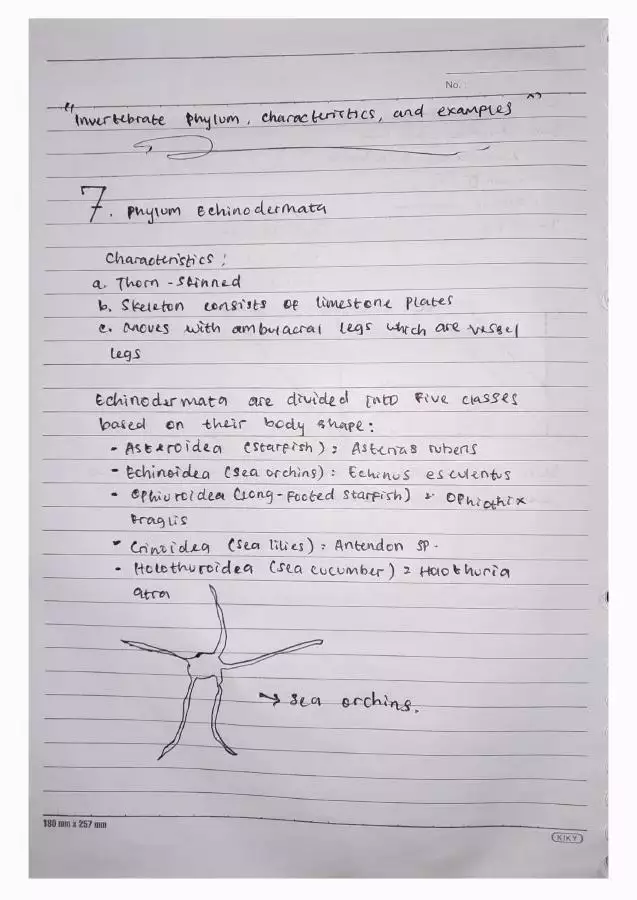 No. :
"Invertebrate phylum, characteristics, and examples"
7. Phylum Echinodermata
Characteristics :
a. Thorn-skinned
b. Skeleton consists of limestone plates
c. Moves with ambulacral legs which are vessel
legs
Echinodermata are divided into five classes
based on their body shape :
- Asteroidea (starfish) : Asterias rubens
- Echinoidea (sea orchins) : Echinus esculentus
- Ophiuroidea (long-footed starfish) : Ophiothix
Fraglis
- Crinoidea (sea lilies) : Antendon sp.
- Holothuroidea (sea cucumber) : Haothuria
atra
→ sea orchins.
180 mm x 257 mm
KIKY